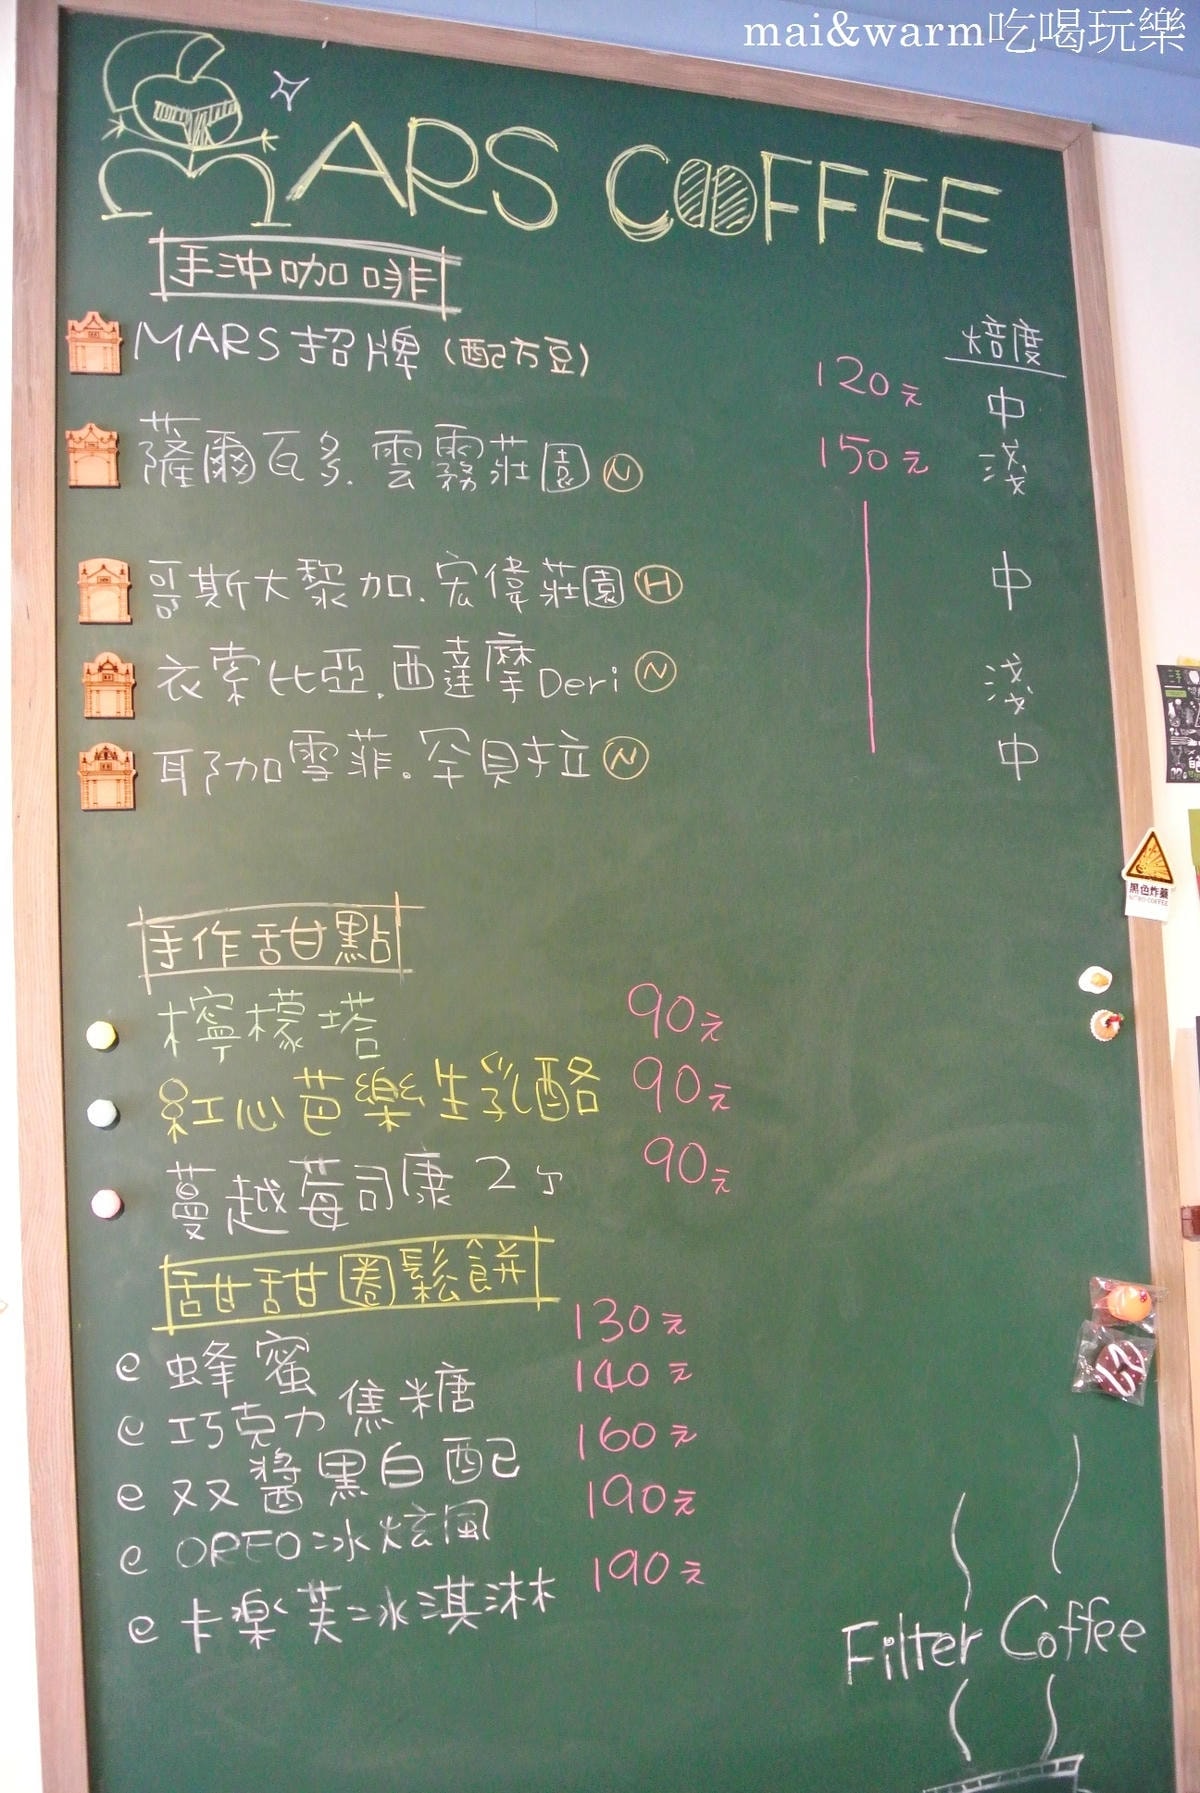 mai&warm吃喝玩樂
MARS COFFEE
手沖咖啡
焙度
MARS招牌(配方豆) 120元 中
薩爾瓦多.雲霧莊園 N 150元 淺
哥斯大黎加.宏偉莊園 H 中
衣索比亞.西達摩Deri N 淺
耶加雪菲.罕貝拉 N 中
黑色炸藥
NITRO COFFEE
手作甜點
檸檬塔 90元
紅心芭樂生乳酪 90元
蔓越莓司康 2个 90元
甜甜圈鬆餅
e 蜂蜜 130元
e 巧克力焦糖 140元
e 双醬黑白配 160元
e OREO冰炫風 190元
e 卡樂芙冰淇淋 190元
Filter Coffee